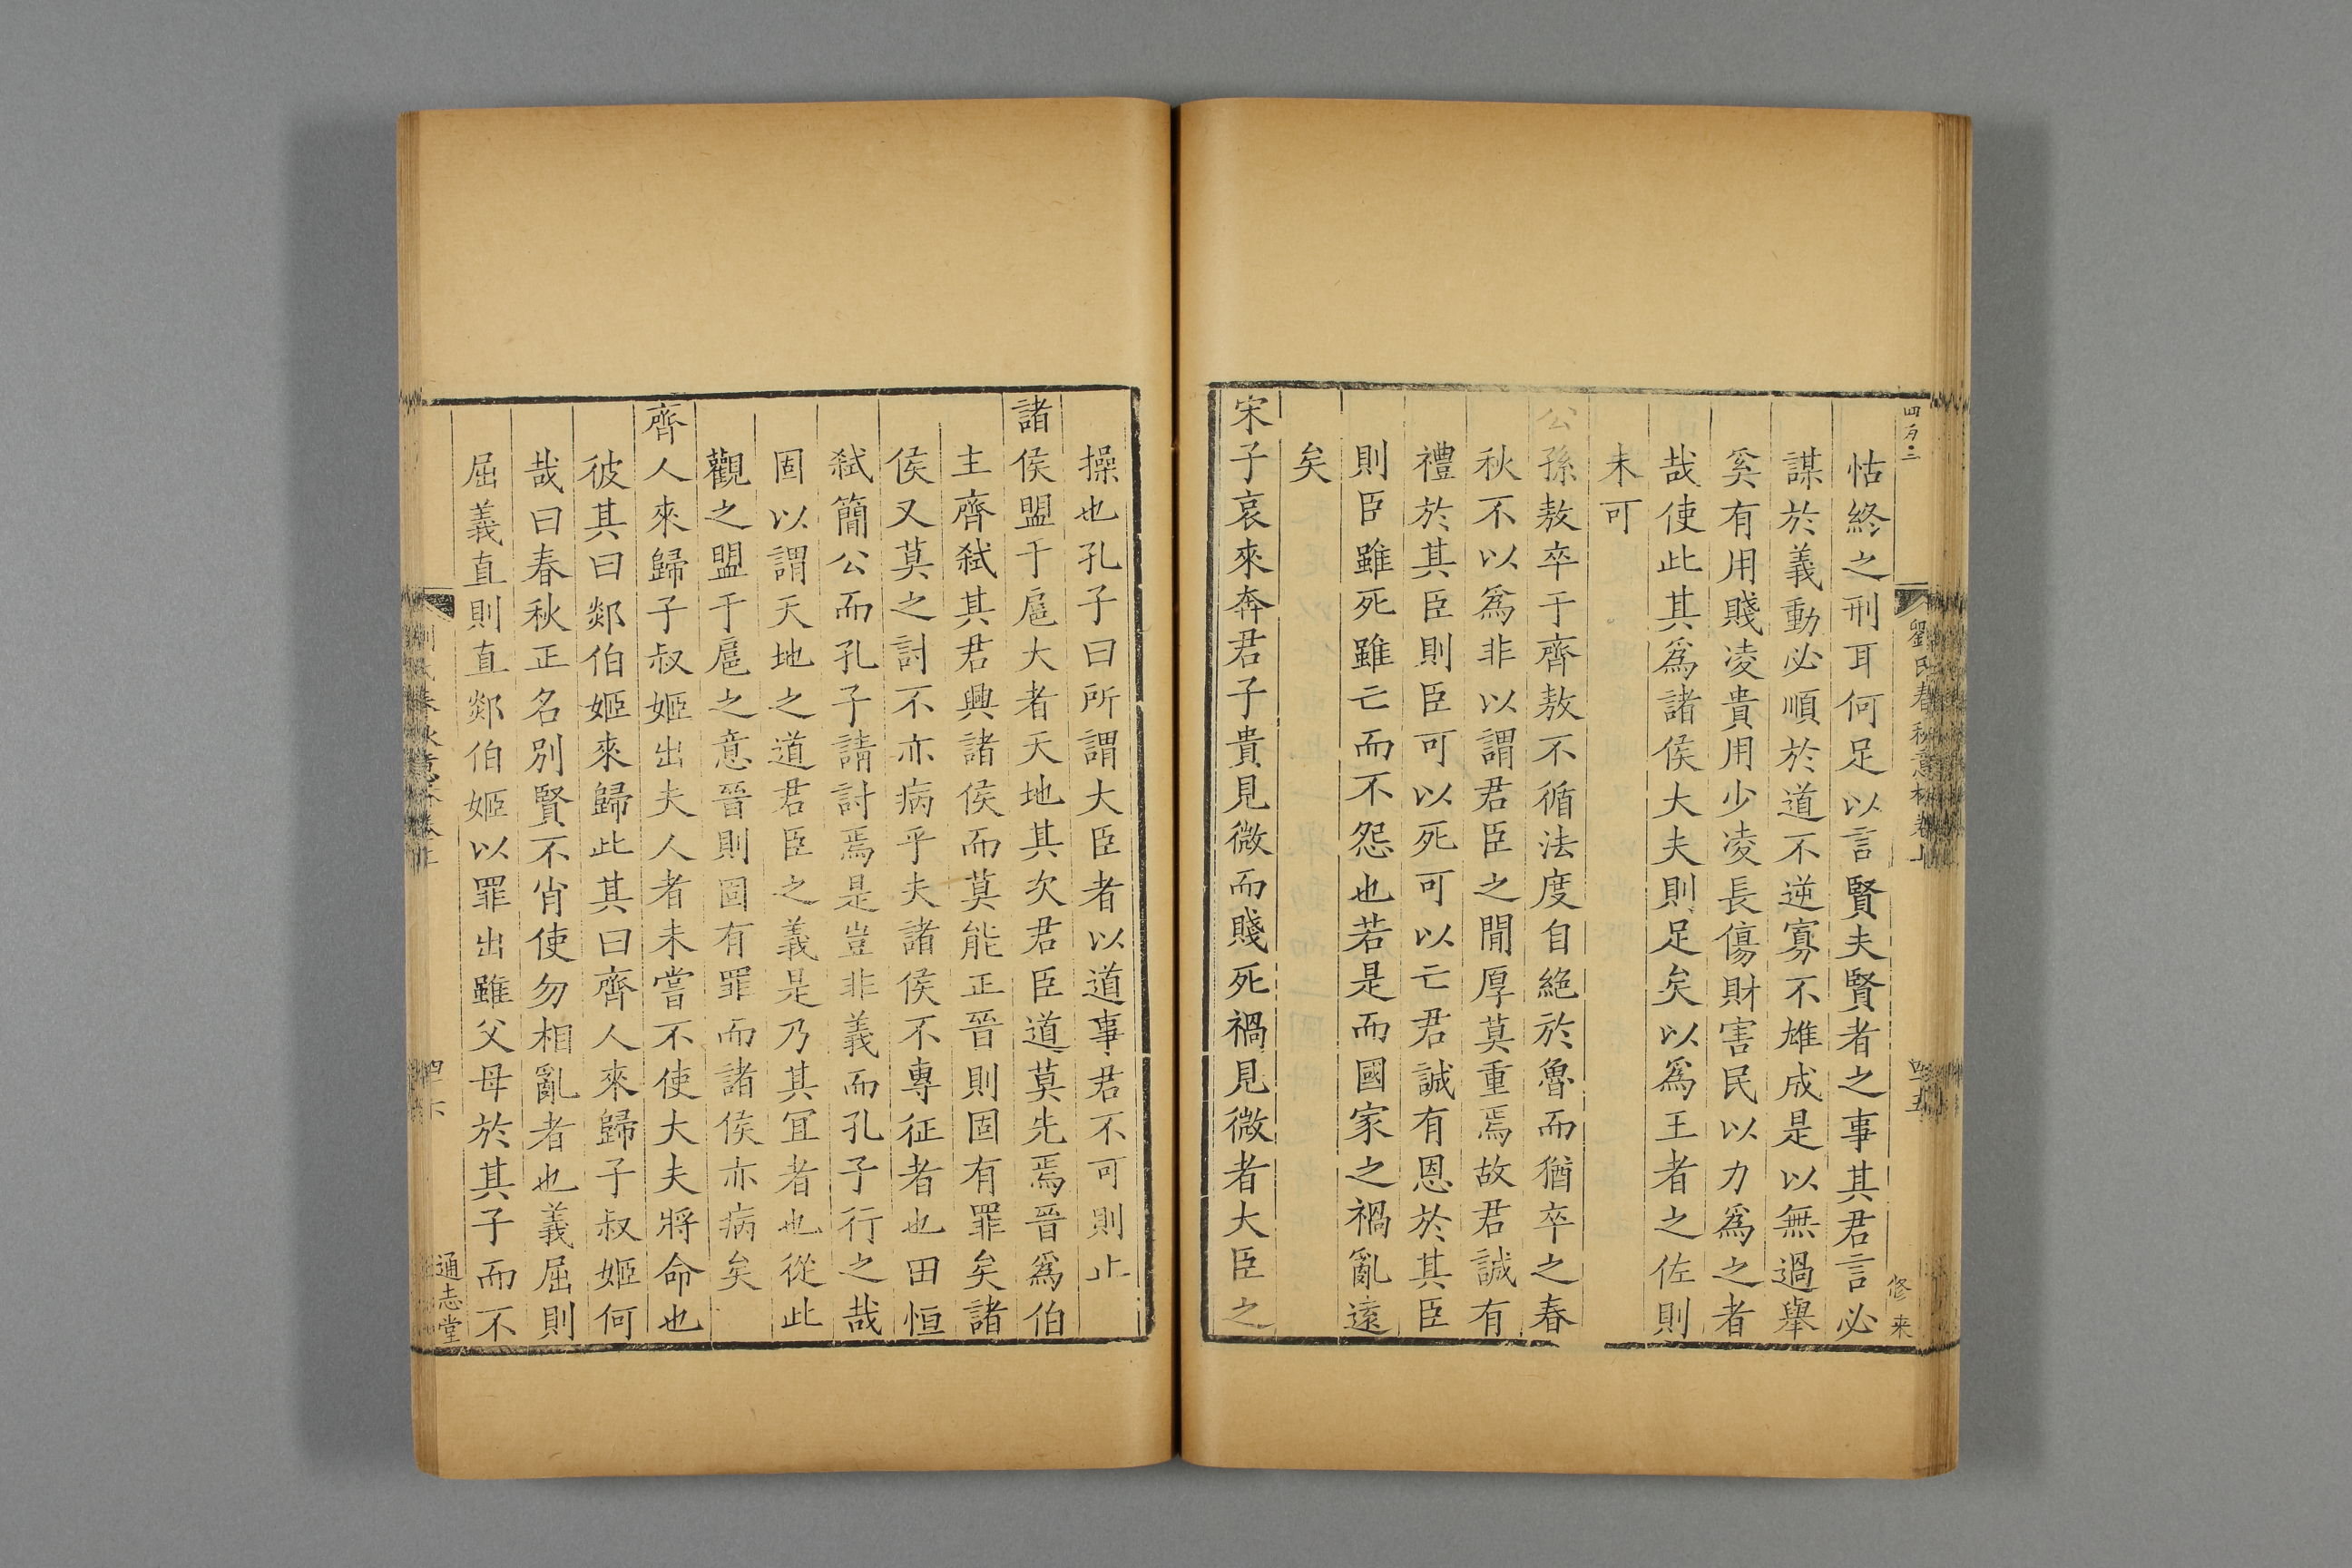 四百三
劉氏春秋意林卷上
四十五
修来
怙終之刑耳何足以言賢夫賢者之事其君言必
謀於義動必順於道不逆寡不雄成是以無過舉
奚有用賤凌貴用少凌長傷財害民以力爲之者
哉使此其爲諸侯大夫則足矣以爲王者之佐則
未可
公孫敖卒于齊敖不循法度自絕於魯而猶卒之春
秋不以爲非以謂君臣之間厚莫重焉故君誠有
禮於其臣則臣可以死可以亡君誠有恩於其臣
則臣雖死雖亡而不怨也若是而國家之禍亂遠
矣
宋子哀來奔君子貴見微而賤死禍見微者大臣之
操也孔子曰所謂大臣者以道事君不可則止
諸侯盟于扈大者天地其次君臣道莫先焉晉爲伯
主齊弒其君興諸侯而莫能正晉則固有罪矣諸
侯又莫之討不亦病乎夫諸侯不專征者也田恒
弒簡公而孔子請討焉是豈非義而孔子行之哉
固以謂天地之道君臣之義是乃其冝者也從此
觀之盟于扈之意晉則固有罪而諸侯亦病矣
齊人來歸子叔姬出夫人者未嘗不使大夫將命也
彼其曰郯伯姬來歸此其曰齊人來歸子叔姬何
哉曰春秋正名別賢不肖使勿相亂者也義屈則
屈義直則直郯伯姬以罪出雖父母於其子而不
通志堂